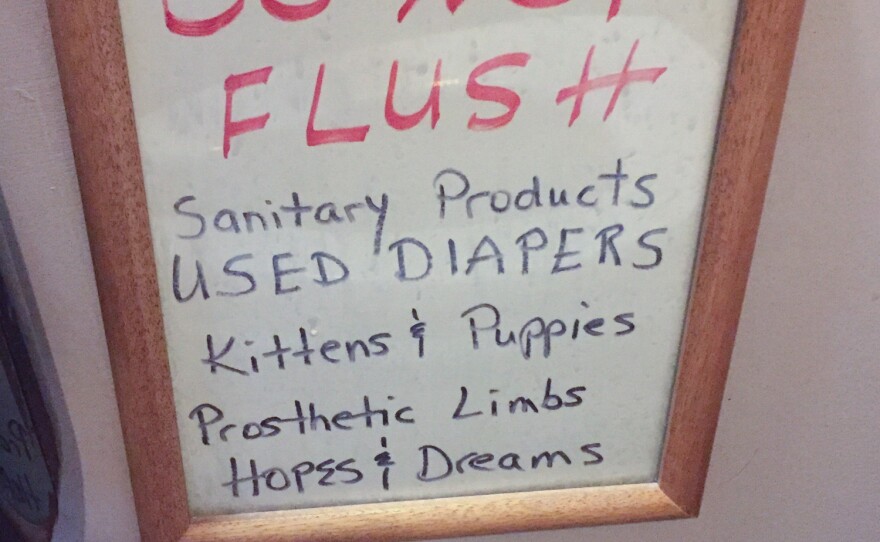 DO NOT
FLUSH
Sanitary Products
USED DIAPERS
Kittens & Puppies
Prosthetic Limbs
HOPES & Dreams